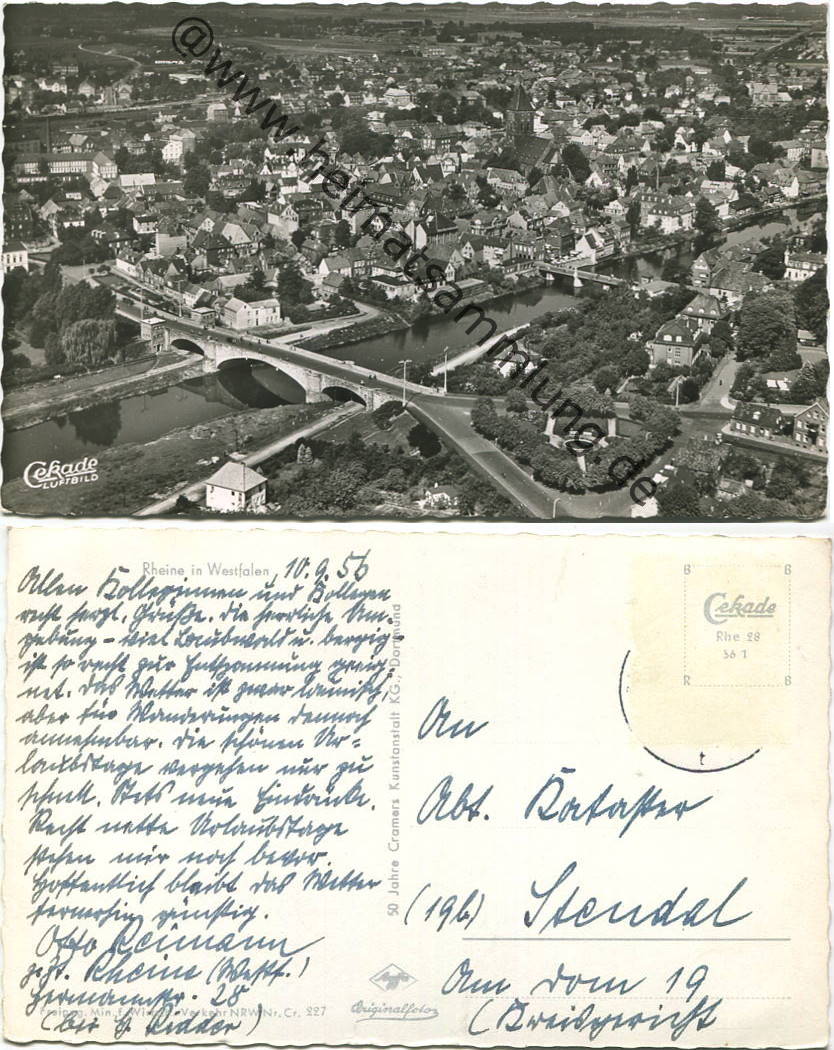 @www.heimatsammlung.de
Cekade
LUFTBILD
Rheine in Westfalen
10.9.56
Allen Kolleginnen und Kollegen
recht herzl. Grüße. Die herrliche Um-
gebung – viel Laubwald u. bergig –
ist so recht zur Entspannung geeig-
net. Das Wetter ist zwar launisch,
aber für Wanderungen dennoch
annehmbar. Die schönen Ur-
laubstage vergehen nur zu
schnell. Stets neue Eindrücke.
Recht nette Urlaubstage
stehen mir noch bevor.
Hoffentlich bleibt das Wetter
fernerhin günstig.
Otto Reimann
zzt. Rheine (Westf.)
Hermannstr. 28
(bei H. Ridder)
Freigeg. Min. f. Wirtsch. Verkehr NRW Nr. Cr. 227
50 Jahre Cramers Kunstanstalt KG., Dortmund
Agfa
Originalfoto
B B
Cekade
Rhe 28
56 1
R B
t
An
Abt. Kataster
(19b) Stendal
Am Dom 19
(Kreisgericht